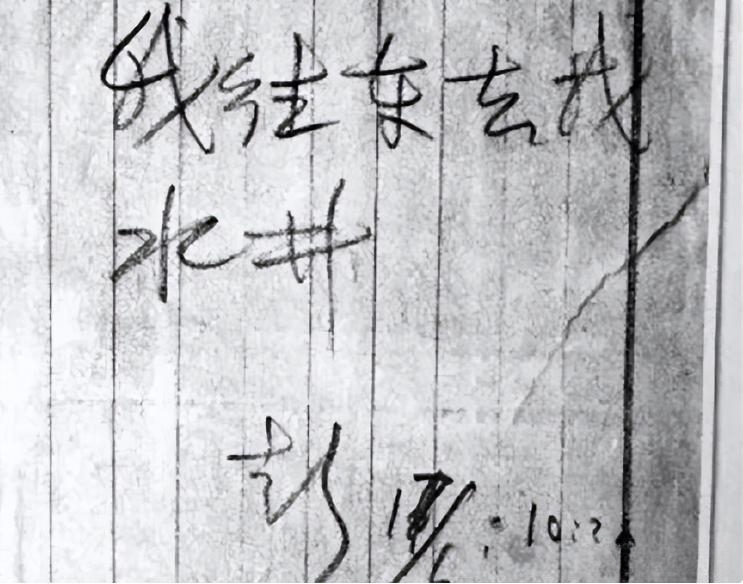 我往东去找
水井
彭 /6 10: